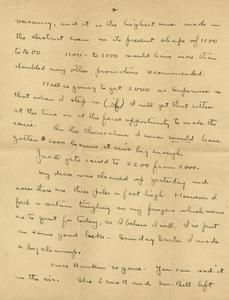 2
vacancy, and it is the highest one made in
the district even in its present shape of 1500
to 1600. 1100 to 1000 would have more than
doubled any other promotion recommended.
Hall is going to get 2000 as supervisor so
that when I step in (if) I will get that either
at the time or at the first opportunity to make the
raise. In the classroom I never would have
gotten $2000 because it was big enough.
Jus gets raised to 2200 from 2000.
My desk was cleaned up yesterday and
now there are three piles a foot high. However I
feel a certain tingling in my fingers which urges
me to quit for today, so I believe I will. I is put
in some good looks. Sunday Exeter I made
a big cleanup.
Miss Rankin is gone. You can read it
in the air. She & Mrs R and Mr. Bill left